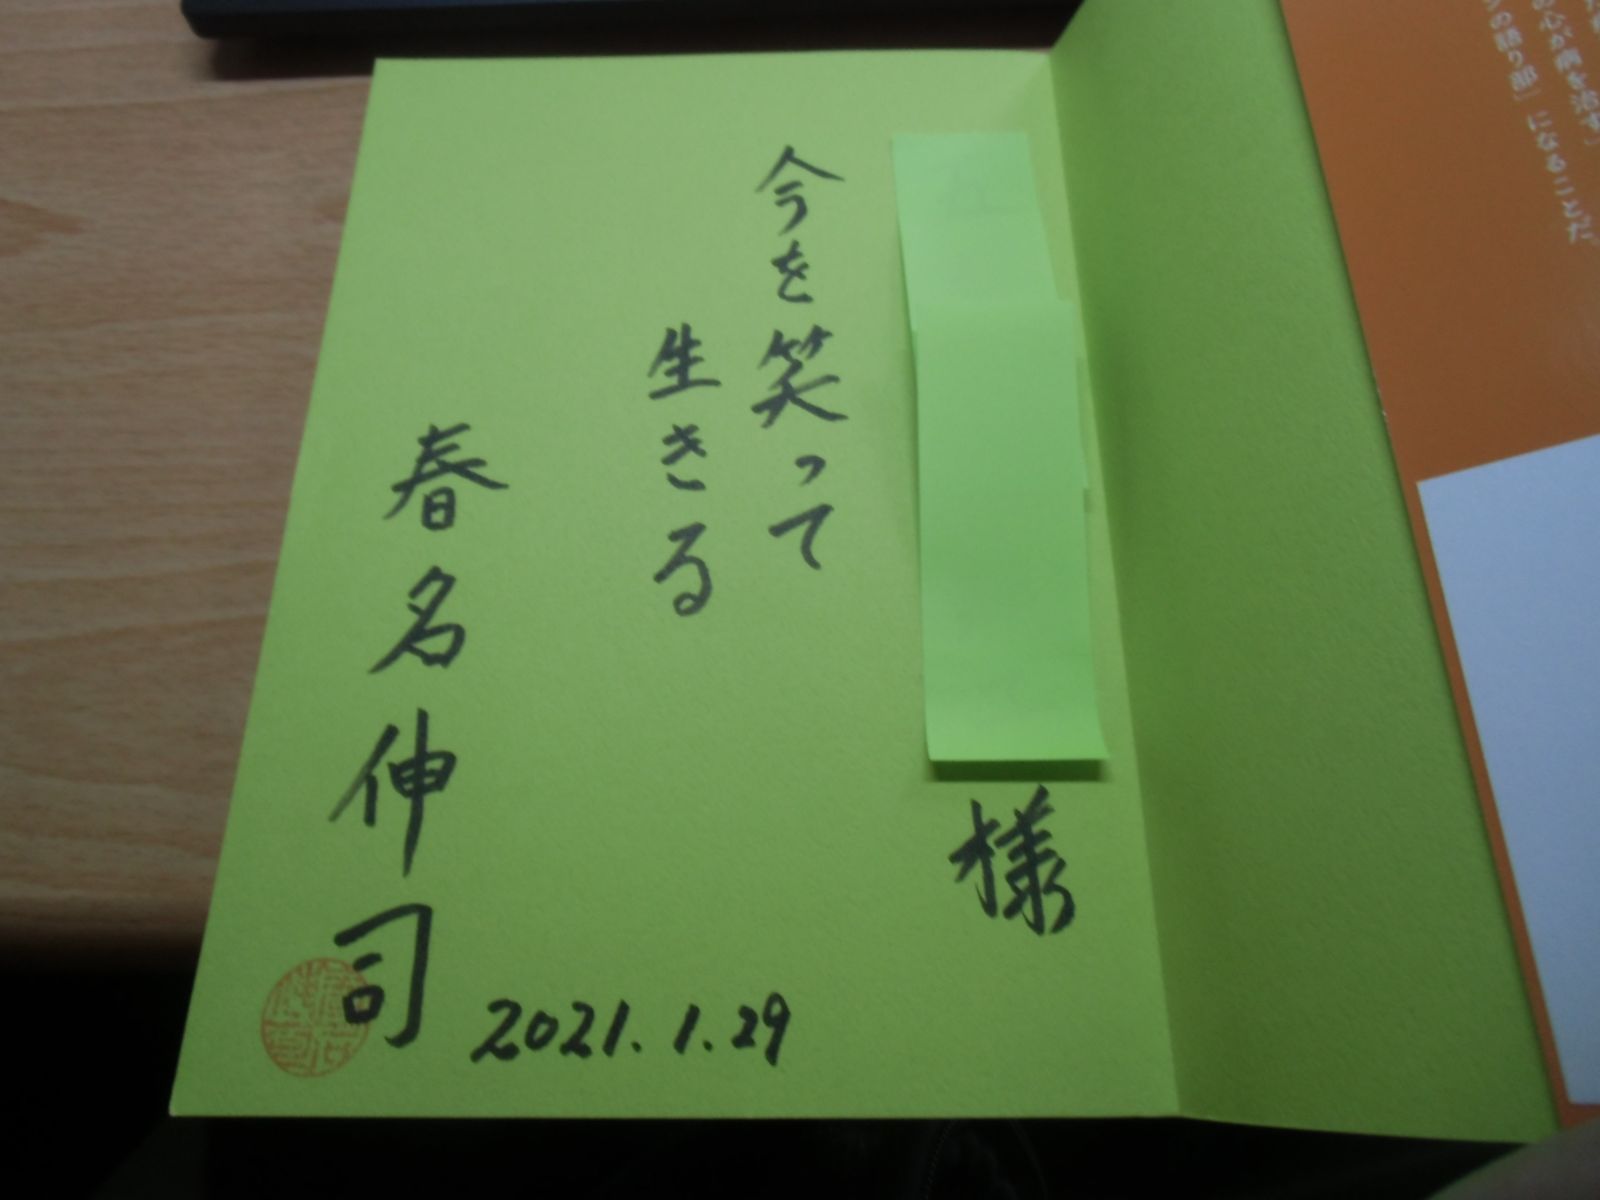 の心が病を治す」
ンの語り部」になることだ。
様
今を笑って
生きる
春名伸司
2021.1.29